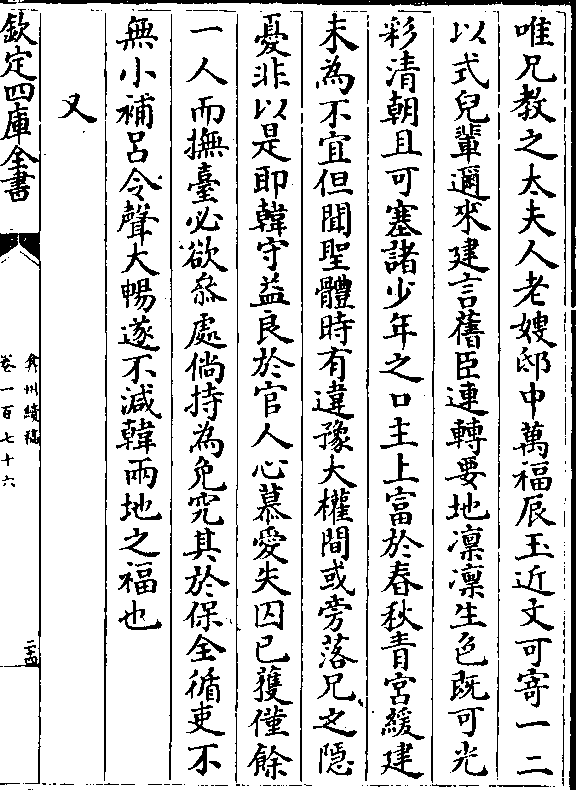 唯兄教之太夫人老嫂邸中萬福辰玉近文可寄一二
以式兒輩邇來建言舊臣連轉要地凛凛生色既可光
彩清朝且可塞諸少年之口主上富於春秋青宮緩建
未為不宜但聞聖體時有違豫大權間或旁落兄之隠
憂非以是即韓守益良於官人心慕愛失囚已獲僅餘
一人而撫臺必欲叅處倘持為免究其於保全循吏不
無小補呂令聲大暢遂不減韓兩地之福也
又
欽定四庫全書
弇州續稿
卷一百七十六
二十四